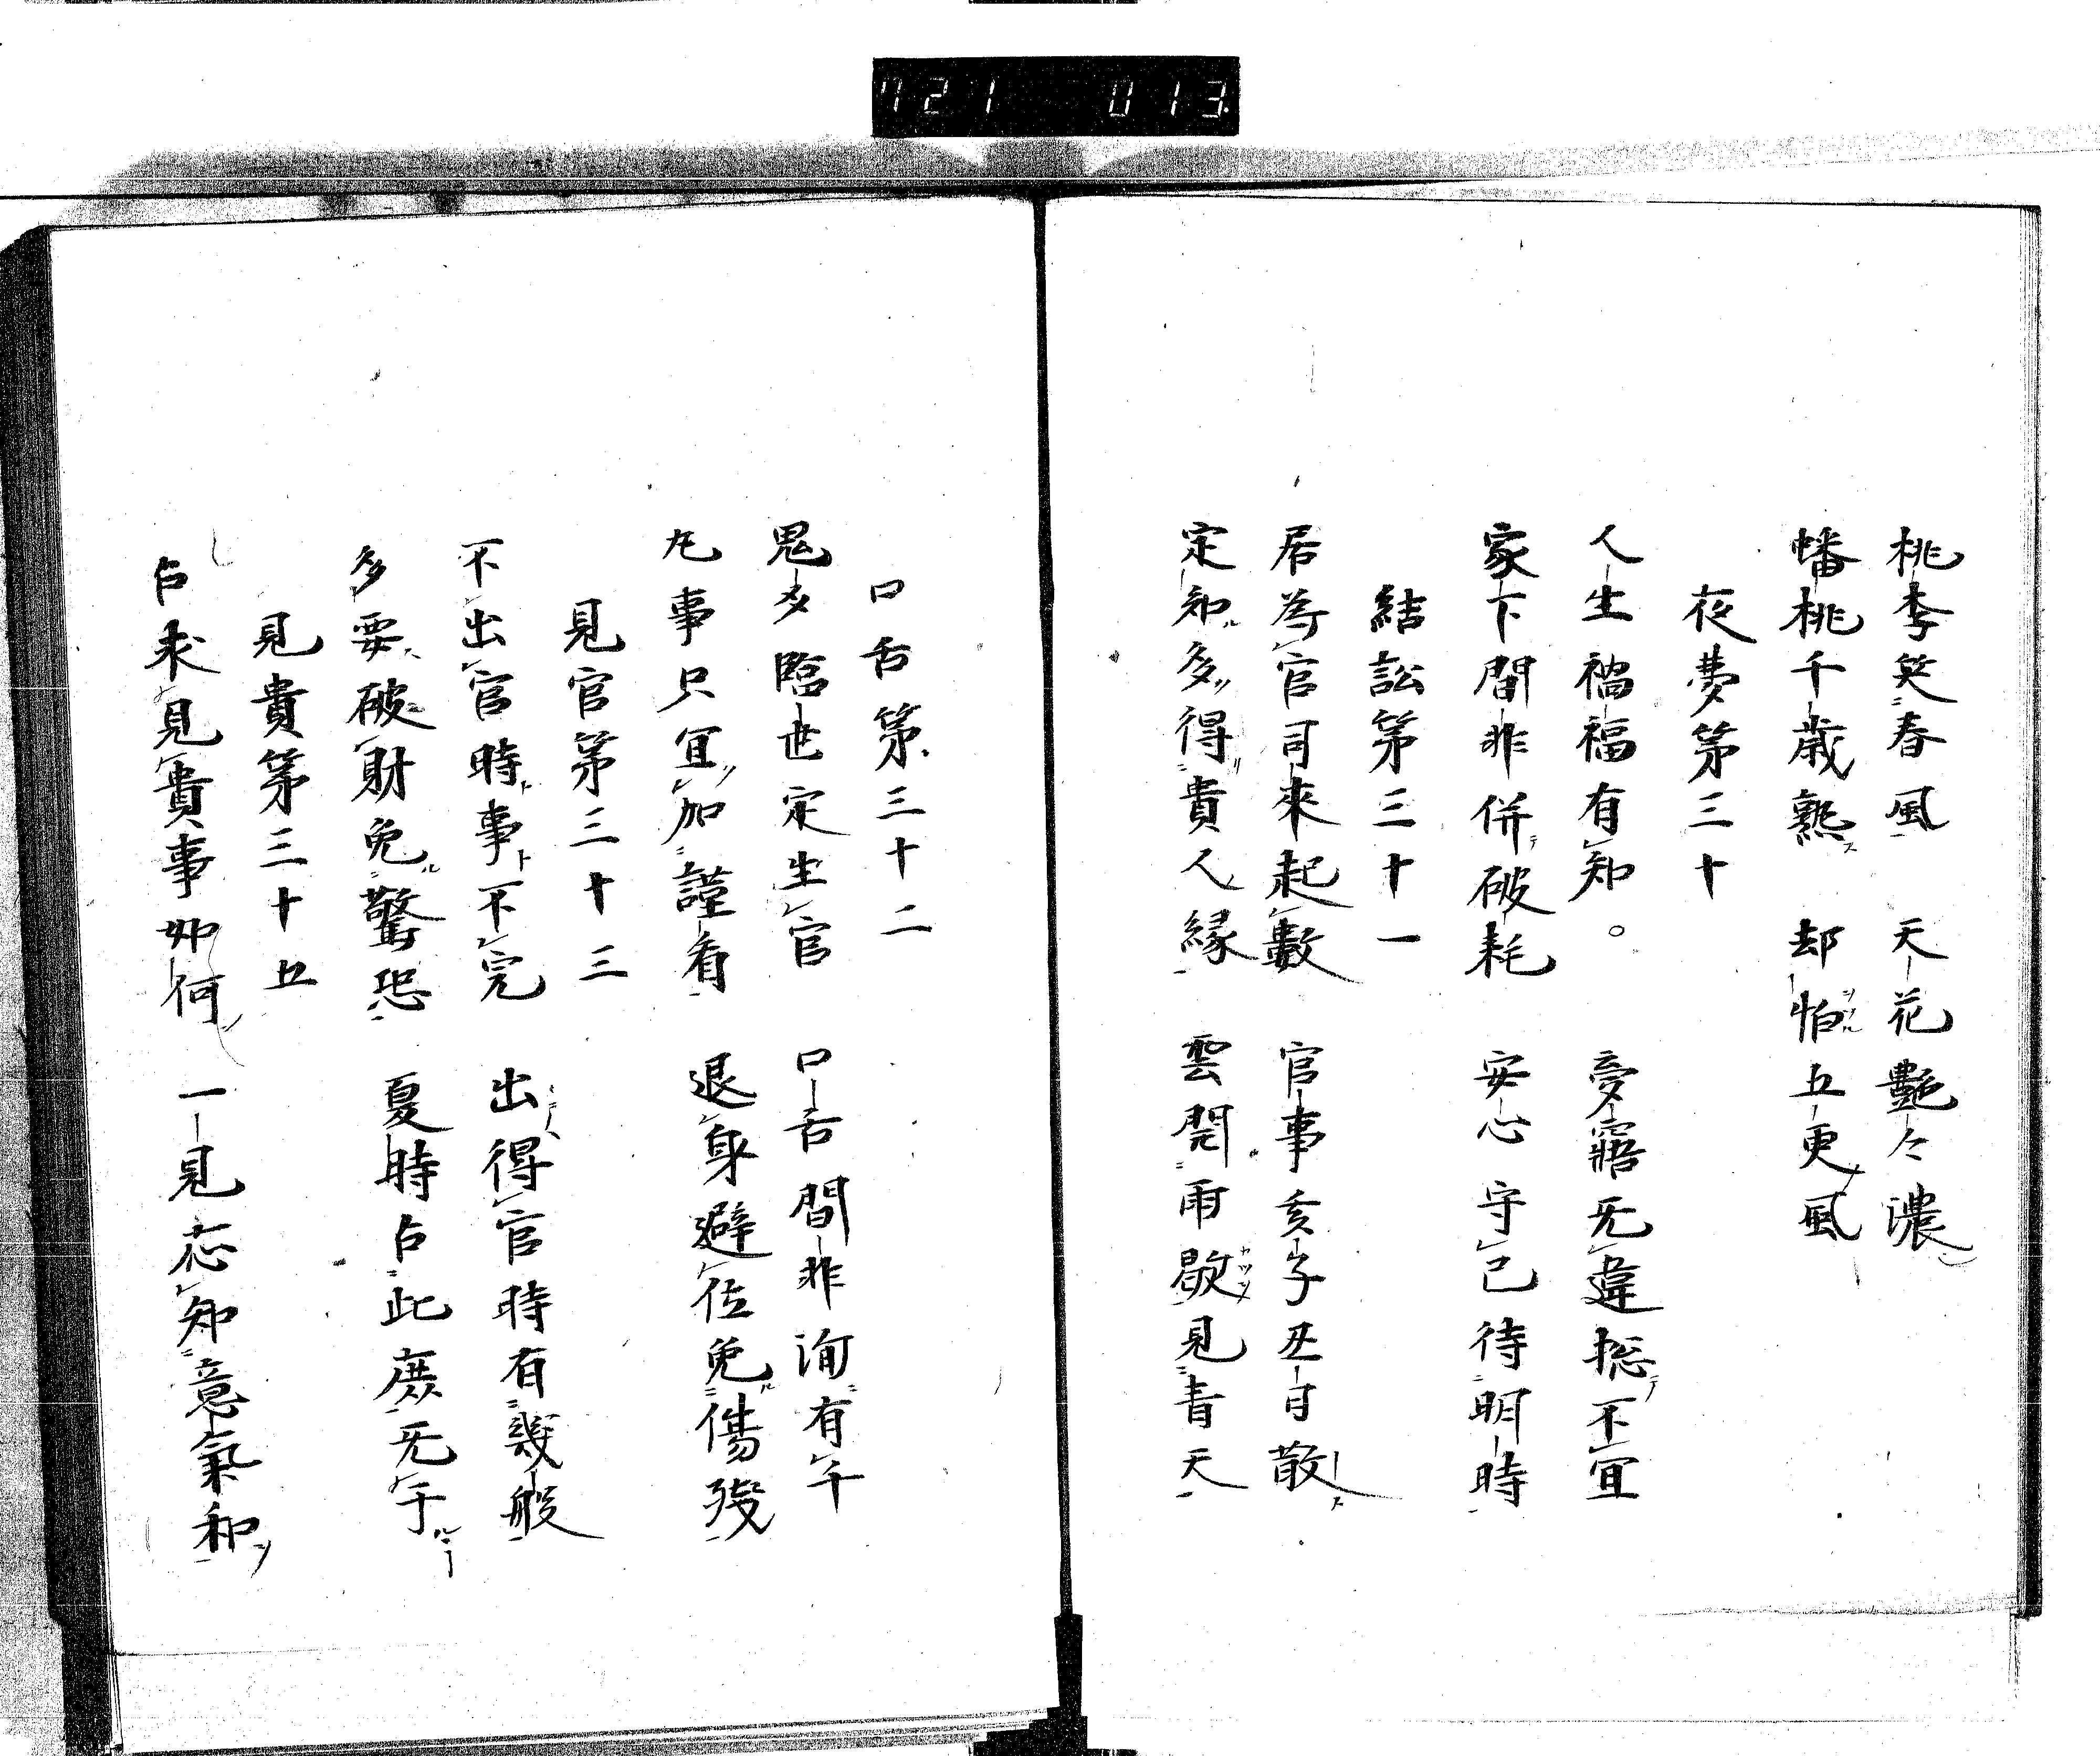 721 013
桃李笑春風 天花艶々濃
蟠桃千歳熟 却怕五更風
夜夢第三十
人生禍福有知 夢寤无違揔不宜
家下間非併破耗 安心守己待明時
結訟第三十一
居等官司来起數 官事亥子丑日散
定知多得貴人縁 雲開雨歇見青天
口舌第三十二
鬼多臨世定生官 口舌間非洵有年
凡事只宜加謹看 退身避位免傷殘
見官第三十三
不出官時事不完 出得官時有幾般
多要破財免驚恐 夏時占此庶无干
見貴第三十五
占求見貴事如何 一見応知意氣和